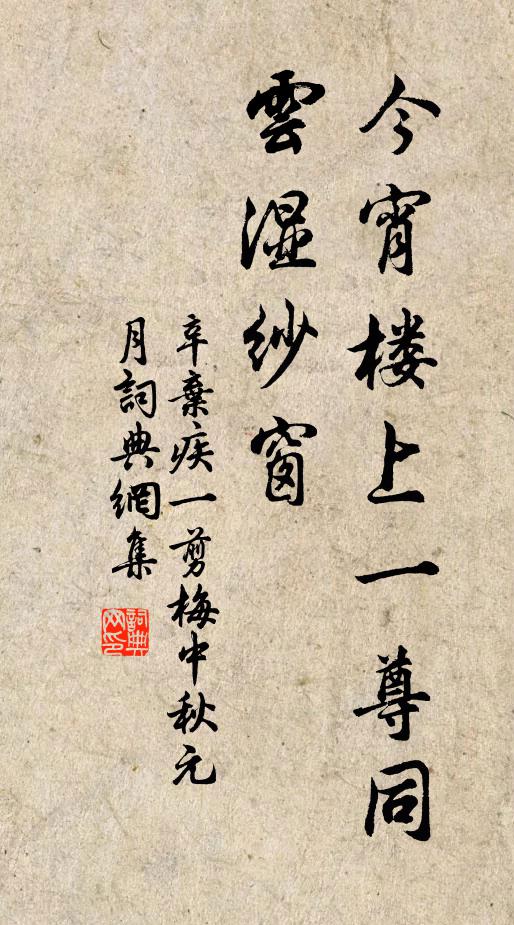 今宵楼上一尊同
雲湿纱窗
辛棄疾一剪梅中秋元
月詞典網集
詞典网印